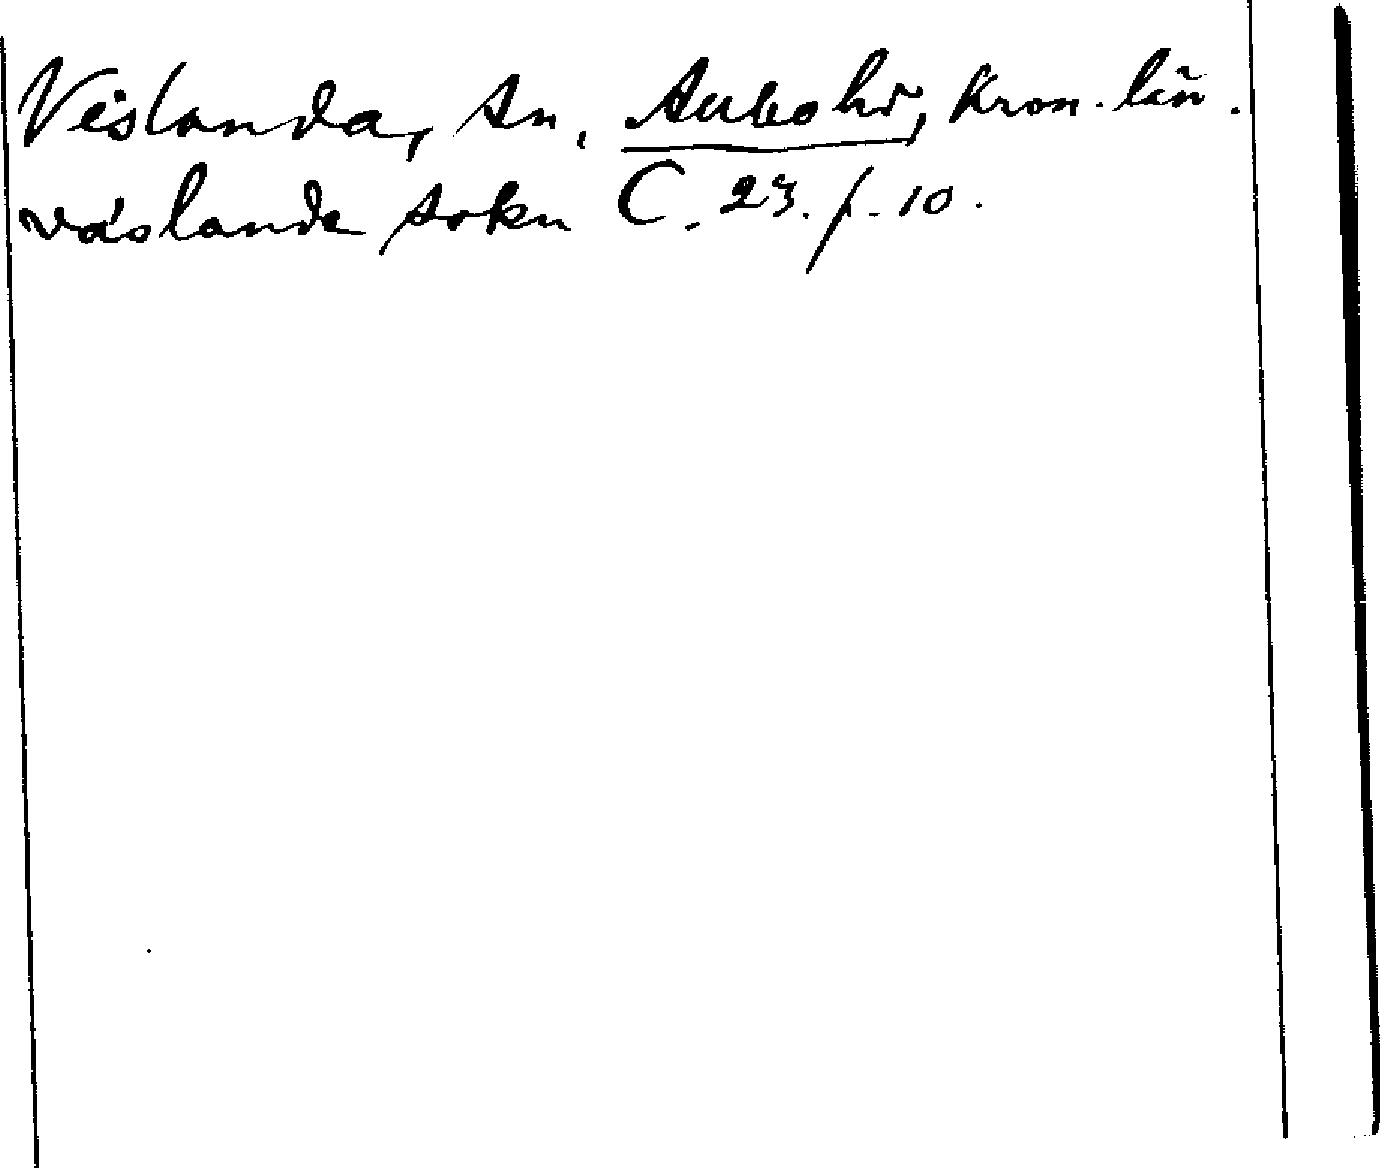 Vislanda, sn, Allbo hd, Kron. län.
väslande sokn C. 23. f. 10.